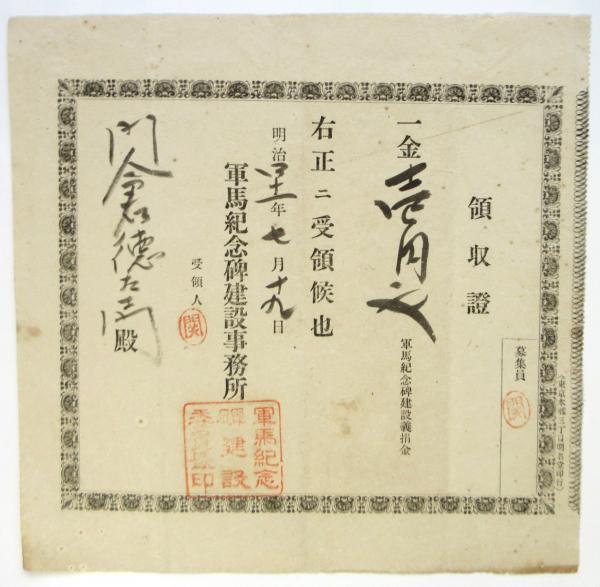 領収證
一金壱円也
軍馬紀念碑建設義捐金
右正ニ受領候也
明治 年七月十九日
軍馬紀念碑建設事務所
受領人 関
門倉徳左衛門殿
募集員
関
軍馬紀念
碑建設
委員長印